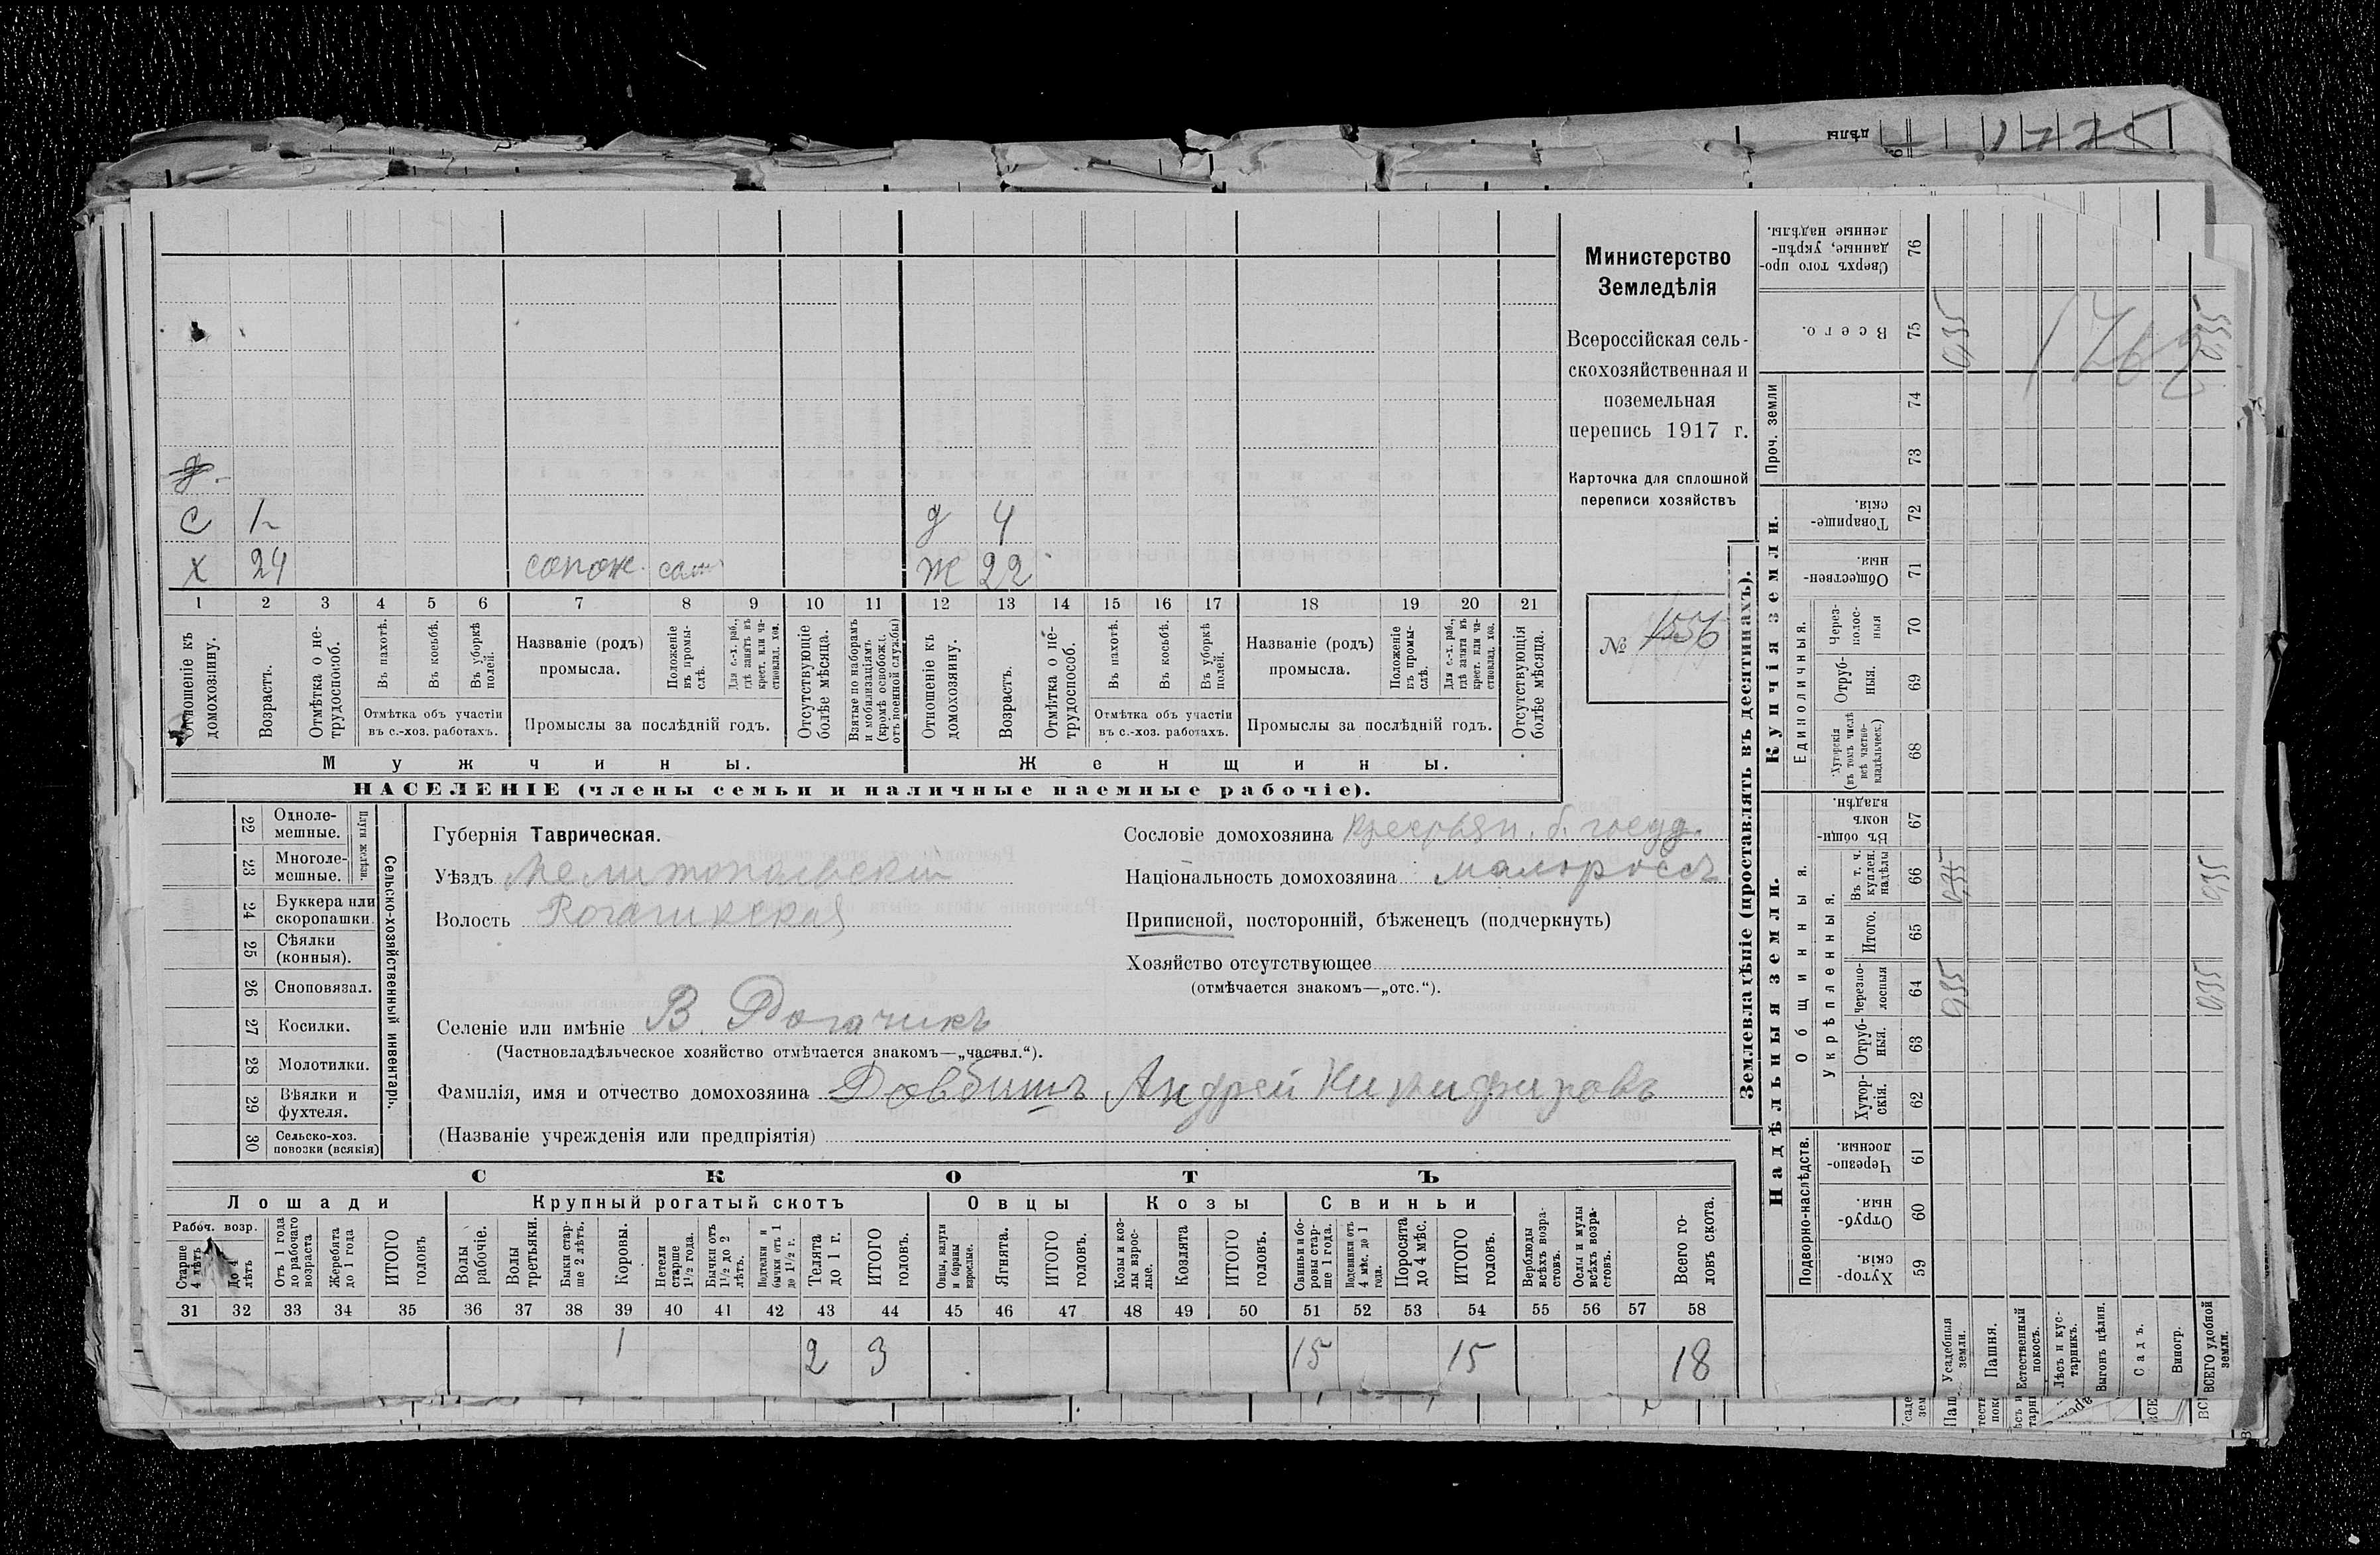 Министерство
Земледѣлія
Всероссійская сель-
скохозяйственная и
поземельная
перепись 1917 г.
Карточка для сплошной
переписи хозяйствъ
№ 1556
д.
с 1 д 4
х 24 сапож. сам ж 22
1 2 3 4 5 6 7 8 9 10 11 12 13 14 15 16 17 18 19 20 21
Отношеніе къ домохозяину.
Возрастъ.
Отмѣтка о не-трудоспособ.
Въ пахотѣ.
Въ косьбѣ.
Въ уборкѣ полей.
Отмѣтка объ участіи
въ с.-хоз. работахъ.
Названіе (родъ)
промысла.
Положеніе въ промы-слѣ.
Для с.-х. раб., гдѣ занятъ въ крест. или ча-стновлад. хоз.
Промыслы за послѣдній годъ.
Отсутствующіе болѣе мѣсяца.
Взятые по наборамъ и мобилизаціямъ (кромѣ освобожд. отъ военной службы)
Отношеніе къ домохозяину.
Возрастъ.
Отмѣтка о не-трудоспособ.
Въ пахотѣ.
Въ косьбѣ.
Въ уборкѣ полей.
Отмѣтка объ участіи
въ с.-хоз. работахъ.
Названіе (родъ)
промысла.
Положеніе въ промы-слѣ.
Для с.-х. раб., гдѣ занята въ крест. или ча-стновлад. хоз.
Промыслы за послѣдній годъ.
Отсутствующія болѣе мѣсяца.
Мужчины. Женщины.
НАСЕЛЕНІЕ (члены семьи и наличные наемные рабочіе).
22 Одноле-мешные.
23 Многоле-мешные.
Плуги желѣзн.
24 Буккера или скоропашки.
25 Сѣялки (конныя).
26 Сноповязал.
27 Косилки.
28 Молотилки.
29 Вѣялки и фухтеля.
30 Сельско-хоз. повозки (всякія)
Сельско-хозяйственный инвентарь.
Губернія Таврическая.
Уѣздъ Мелитопольскій
Волость Рогачикская
Сословіе домохозяина крестьян. б. госуд.
Національность домохозяина малороссъ
Приписной, посторонній, бѣженецъ (подчеркнуть)
Хозяйство отсутствующее
(отмѣчается знакомъ—„отс.“).
Селеніе или имѣніе В. Рогачикъ
(Частновладѣльческое хозяйство отмѣчается знакомъ—„частвл.“).
Фамилія, имя и отчество домохозяина Довбишъ Андрей Никифировъ
(Названіе учрежденія или предпріятія)
СКОТЪ
Лошади Крупный рогатый скотъ Овцы Козы Свиньи
Рабоч. возр.
Старше 4 лѣтъ
До 4 лѣтъ
Отъ 1 года до рабочаго возраста
Жеребята до 1 года
ИТОГО головъ
Волы рабочіе.
Волы третьяки.
Быки стар-ше 2 лѣтъ.
Коровы.
Нетели старше 1½ года.
Бычки отъ 1½ до 2 лѣтъ.
Подтелки и бычки отъ 1 до 1½ г.
Телята до 1 г.
ИТОГО головъ.
Овцы, валухи и бараны взрослые.
Ягнята.
ИТОГО головъ.
Козы и коз-лы взрос-лые.
Козлята
ИТОГО головъ.
Свиньи и бо-ровы стар-ше 1 года.
Подсвинки отъ 4 мѣс. до 1 года.
Поросята до 4 мѣс.
ИТОГО головъ.
Верблюды всѣхъ возра-стовъ.
Ослы и мулы всѣхъ возра-стовъ.
Всего го-ловъ скота.
31 32 33 34 35 36 37 38 39 40 41 42 43 44 45 46 47 48 49 50 51 52 53 54 55 56 57 58
1 2 3 15 15 18
Землевладѣніе (проставлять въ десятинахъ).
Купчія земли.
Надѣльныя земли.
Сверхъ того про-данные, укрѣп-ленные надѣлы. 76
Всего. 75 0,35 0,35
1762
Проч. земли 74
73
Товарище-скія. 72
Обществен-ныя. 71
Единоличныя.
Через-полос-ныя 70
Отруб-ныя. 69
Хуторскія (въ томъ числѣ всѣ частно-владѣльческ.) 68
Общинныя.
Въ общин-номъ владѣн. 67
Укрѣпленныя.
Въ т. ч. куплен. надѣлы 66 0,35 0,35
Итого. 65
Черезпо-лосныя 64 0,35 0,35
Отруб-ныя. 63
Хутор-скія. 62
Подворно-наслѣдств.
Черезпо-лосныя. 61
Отруб-ныя. 60
Хутор-скія. 59
Усадебныя земли.
Пашня.
Естественный покосъ.
Лѣсъ и кус-тарникъ.
Выгонъ цѣлин.
Садъ.
Виногр.
ВСЕГО удобной земли.
дѣлы
1775